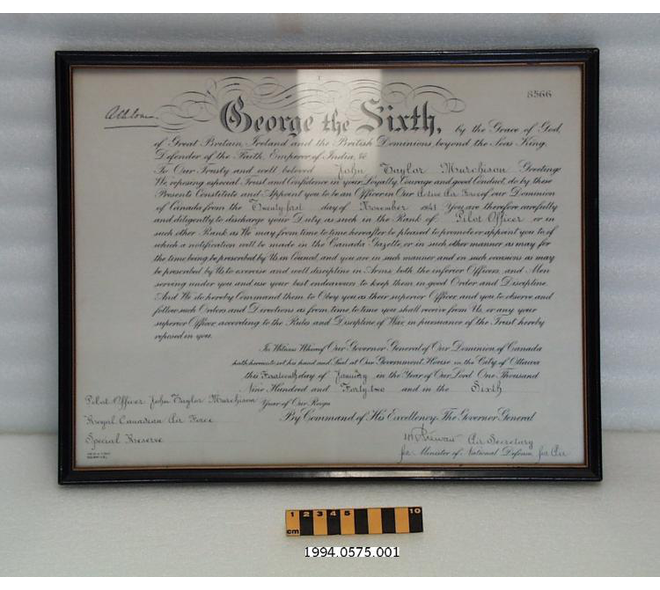 8566
George the Sixth, by the Grace of God,
of Great Britain, Ireland and the British Dominions beyond the Seas King,
Defender of the Faith, Emperor of India, &c
To Our Trusty and well beloved John Taylor Murchison Greeting
We reposing especial Trust and Confidence in your Loyalty, Courage and good Conduct, do by these
Presents Constitute and Appoint you to be an Officer in Our Active Air Force of our Dominion
of Canada from the Twenty first day of November 1941 You are therefore carefully
and diligently to discharge your Duty as such in the Rank of Pilot Officer or in
such other Rank as We may from time to time hereafter be pleased to promote or appoint you to, of
which a notification will be made in the Canada Gazette, or in such other manner as may for
the time being be prescribed by Us in Council, and you are in such manner and on such occasions as may
be prescribed by Us to exercise and well discipline in Arms both the inferior Officers and Men
serving under you and use your best endeavours to keep them in good Order and Discipline.
And We do hereby Command them to Obey you as their superior Officer, and you to observe and
follow such Orders and Directions as from time to time you shall receive from Us, or any your
superior Officer, according to the Rules and Discipline of War, in pursuance of the Trust hereby
reposed in you.
In Witness Whereof Our Governor General of Our Dominion of Canada
hath hereunto set his hand and Seal at Our Government House in the City of Ottawa
this day of January in the Year of Our Lord One Thousand
Nine Hundred and Forty two and in the Sixth
Year of Our Reign
Pilot Officer John Taylor Murchison
By Command of His Excellency The Governor General
Royal Canadian Air Force
Special Reserve
Air Secretary
for Minister of National Defence for Air
1 2 3 4 5 10
cm
1994.0575.001